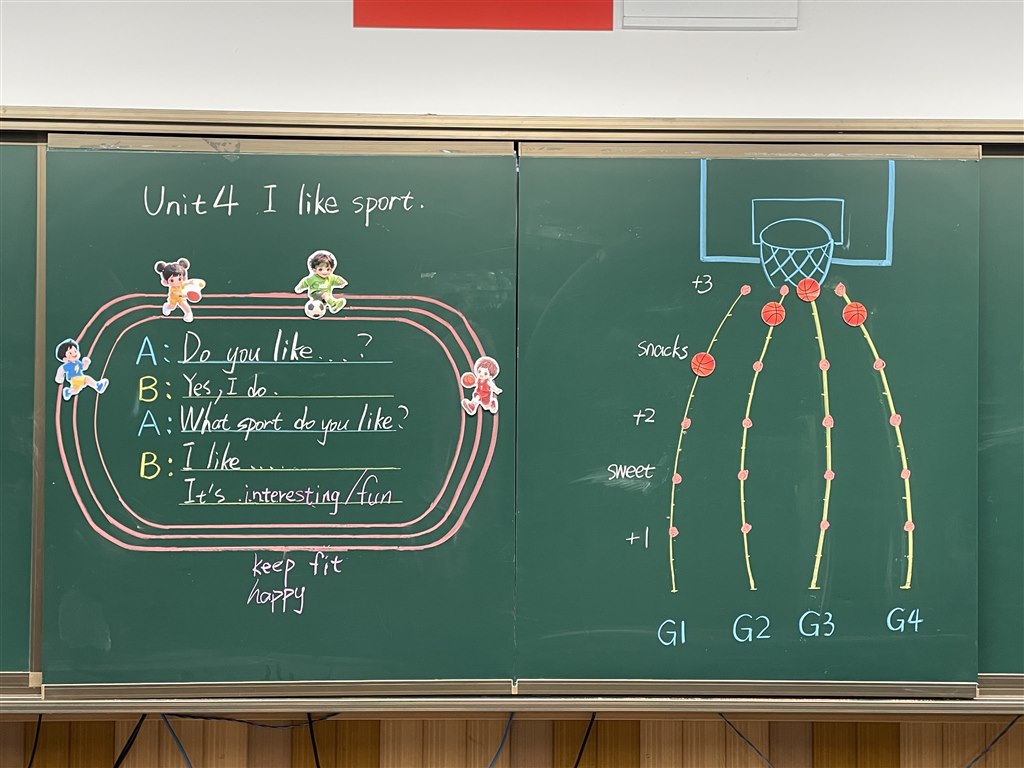 Unit 4 I like sport.
A: Do you like....?
B: Yes, I do.
A: What sport do you like?
B: I like ......
It's interesting/fun
keep fit
happy
+3
snacks
+2
sweet
+1
G1 G2 G3 G4